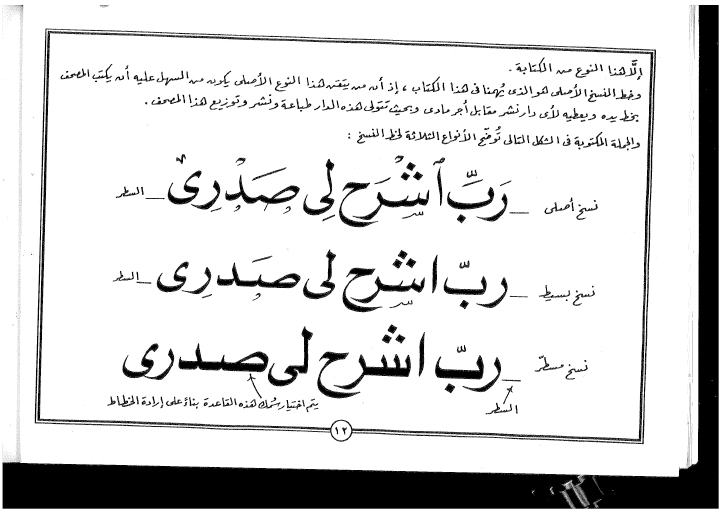 إلَّا هذا النوع من الكتابة .
وخط النسخ الأصلى هو الذى يُهمنا فى هذا الكتاب ، إذ أن من يتقن هذا النوع الأصلى يكون من السهل عليه أن يكتب المصحف
بخط يده ويعطيه لأى دار نشر مقابل أجر مادى وبحيث تتولى هذه الدار طباعة ونشر وتوزيع هذا المصحف .
والجملة المكتوبة فى الشكل التالى تُوضّح الأنواع الثلاثة لخط النسخ :
نسخ أصلى رَبِّ ٱشْرَح لِى صَدْرِى السطر
نسخ بسيط ربّ اشرح لى صدرى السطر
نسخ مسطّر ربّ اشرح لى صدرى
السطر يتم اختيار سُمك هذه القاعدة بناءً على إرادة الخطاط
١٢